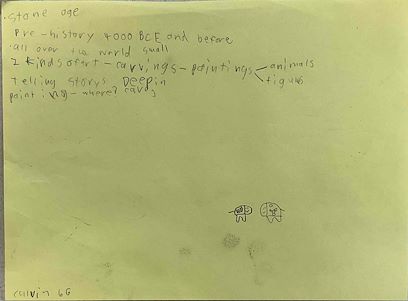 . Stone age
Pre-history 4000 BCE and before
all over the world small
2 kinds of art - carvings - paintings < animals
figures
Telling storys Deep in
painting - where? caves
calvin 6G